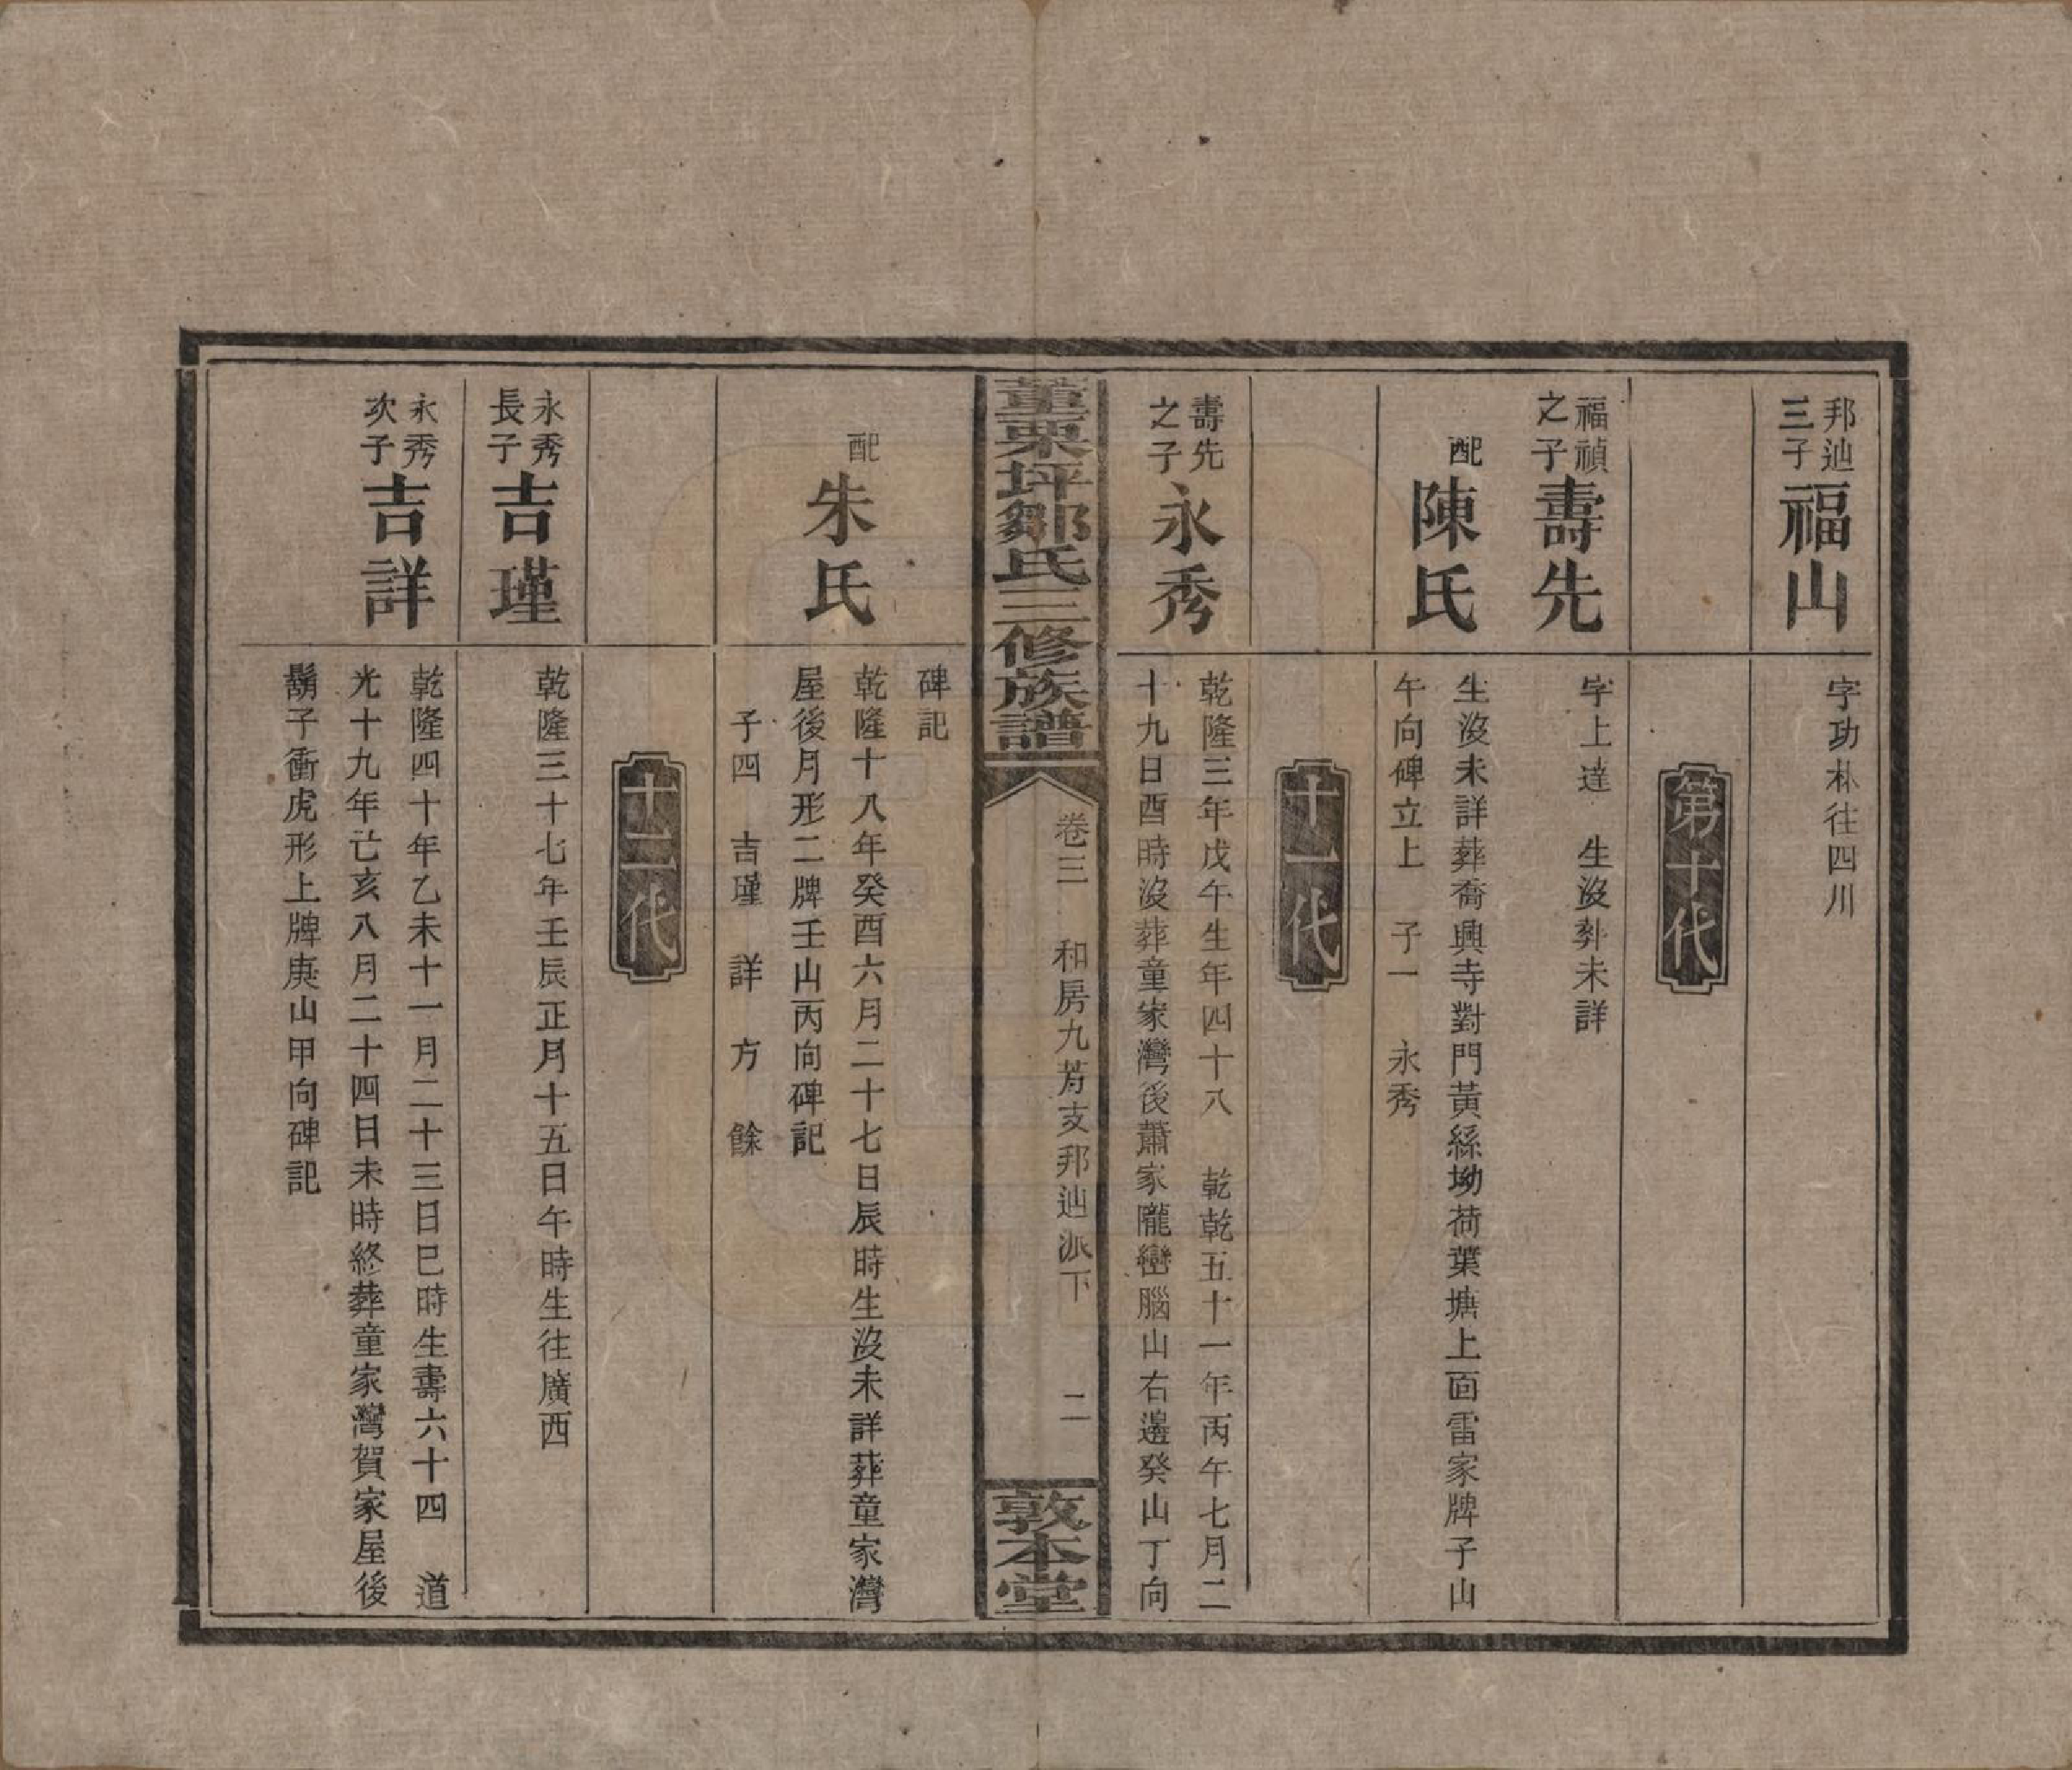 邦辿
三子
福山
字功林往四川
第十代
福禎
之子
壽先
字上達　生沒葬未詳
配
陳氏
生沒未詳葬喬興寺對門黃絲坳荷葉塘上面雷家牌子山
午向碑立上　子一　永秀
十一代
壽先
之子
永秀
乾隆三年戊午生年四十八　乾乾五十一年丙午七月二
十九日酉時沒葬童家灣後蕭家隴巒腦山右邊癸山丁向
董粟坪鄒氏三修族譜
卷三　和房九芳支邦辿派下　二
敦本堂
碑記
配
朱氏
乾隆十八年癸酉六月二十七日辰時生沒未詳葬童家灣
屋後月形二牌壬山丙向碑記
子四　吉瑾　詳　方　餘
十二代
永秀
長子
吉瑾
乾隆三十七年壬辰正月十五日午時生往廣西
永秀
次子
吉詳
乾隆四十年乙未十一月二十三日巳時生壽六十四　道
光十九年亡亥八月二十四日未時終葬童家灣賀家屋後
鬍子衝虎形上牌庚山甲向碑記